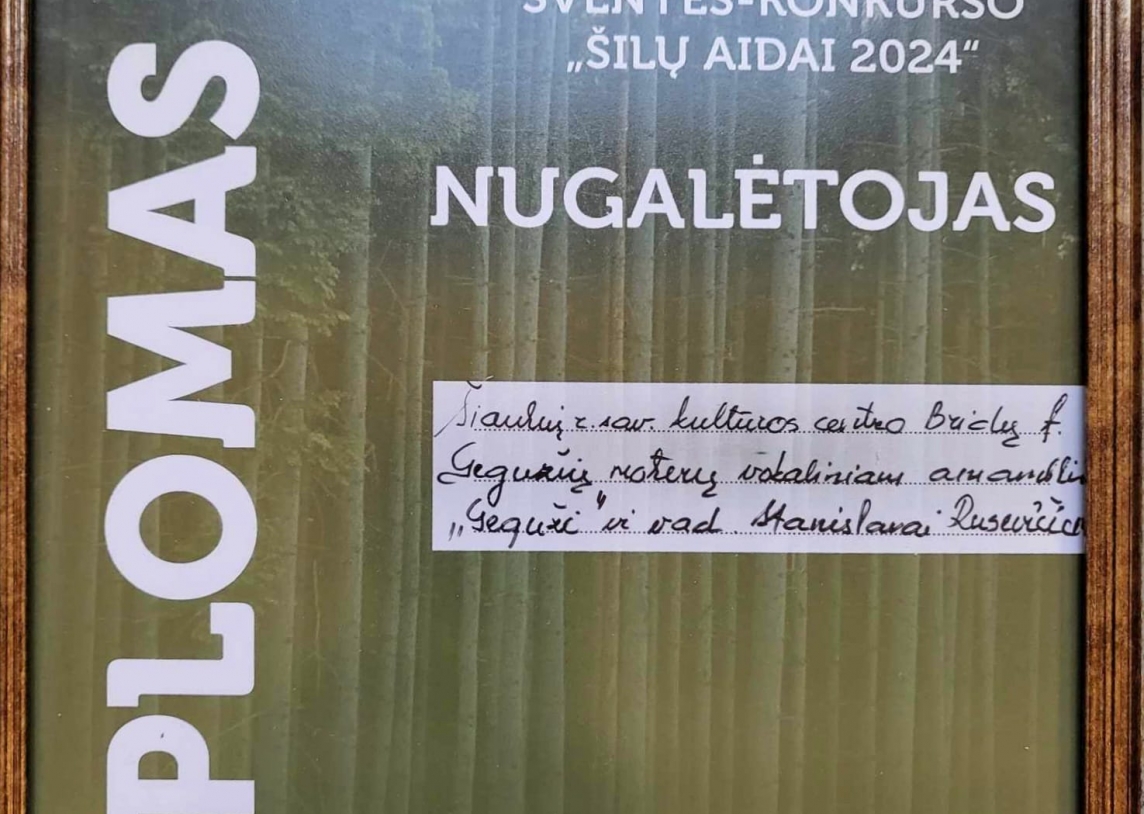 ŠVENTĖS-KONKURSO
„ŠILŲ AIDAI 2024“
NUGALĖTOJAS
Šiaulių r. sav. kultūros centro Bridų f.
Gegužių moterų vokaliniam
„Gegužė" ir vad. Stanislavai
PLOMAS